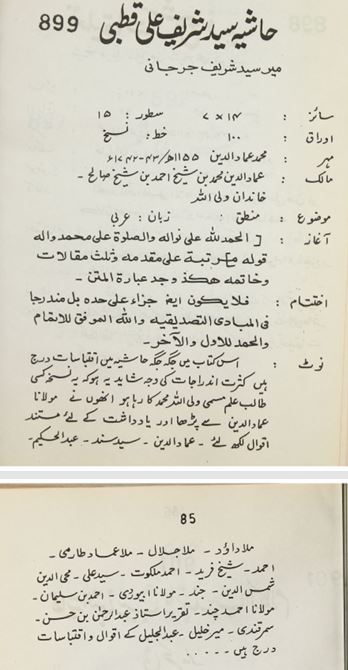 899 حاشیہ سید شریف علی قطبی
میر سید شریف جرجانی
سائز : ۷ × ۱۴ سطور : ۱۵
اوراق : ۱۰۰ خط : نسخ
مہر : محمد عمادالدین ۱۱۵۵ھ/۴۳-۱۷۴۲ء
مالک : عمادالدین محمد بن شیخ احمد بن شیخ صالح -
خاندان ولی اللہ
موضوع : منطق : زبان : عربی
آغاز : [ الحمد للہ علی نوالہ والصلوۃ علی محمد والہ
قولہ مرتبۃ علی مقدمہ وثلث مقالات
وخاتمہ ھکذ وجد عبارۃ المتن -
اختتام : فلا یکون ایضا جزاء علی حدہ بل مندرجا
فی المبادی التصدیقیہ واللہ الموفق للاتمام
والحمد للاول والآخر -
نوٹ : اس کتاب میں جگہ جگہ حاشیہ میں اقتباسات درج
ہیں کثرت اندراجات کی وجہ شاید یہ ہو کہ یہ نسخہ کسی
طالب علم مسمی ولی اللہ محمد کا رہا ہو انھوں نے مولانا
عمادالدین سے پڑھا اور یادداشت کے لئے مستند
اقوال لکھ لئے - عمادالدین - سید سند - عبدالحکیم -
85
ملا داؤد - ملا جلال - ملا عماد طارمی -
احمد - شیخ فرید - احمد ملکوت - سید علی - محی الدین
شمس الدین - جند - مولانا ابیوردی - احمد بن سلیمان -
مولانا احمد چند - تقریر استاذ عبدالرحمٰن بن حسن -
سمرقندی - میر خلیل - عبدالجلیل کے اقوال و اقتباسات
درج ہیں - . . . .